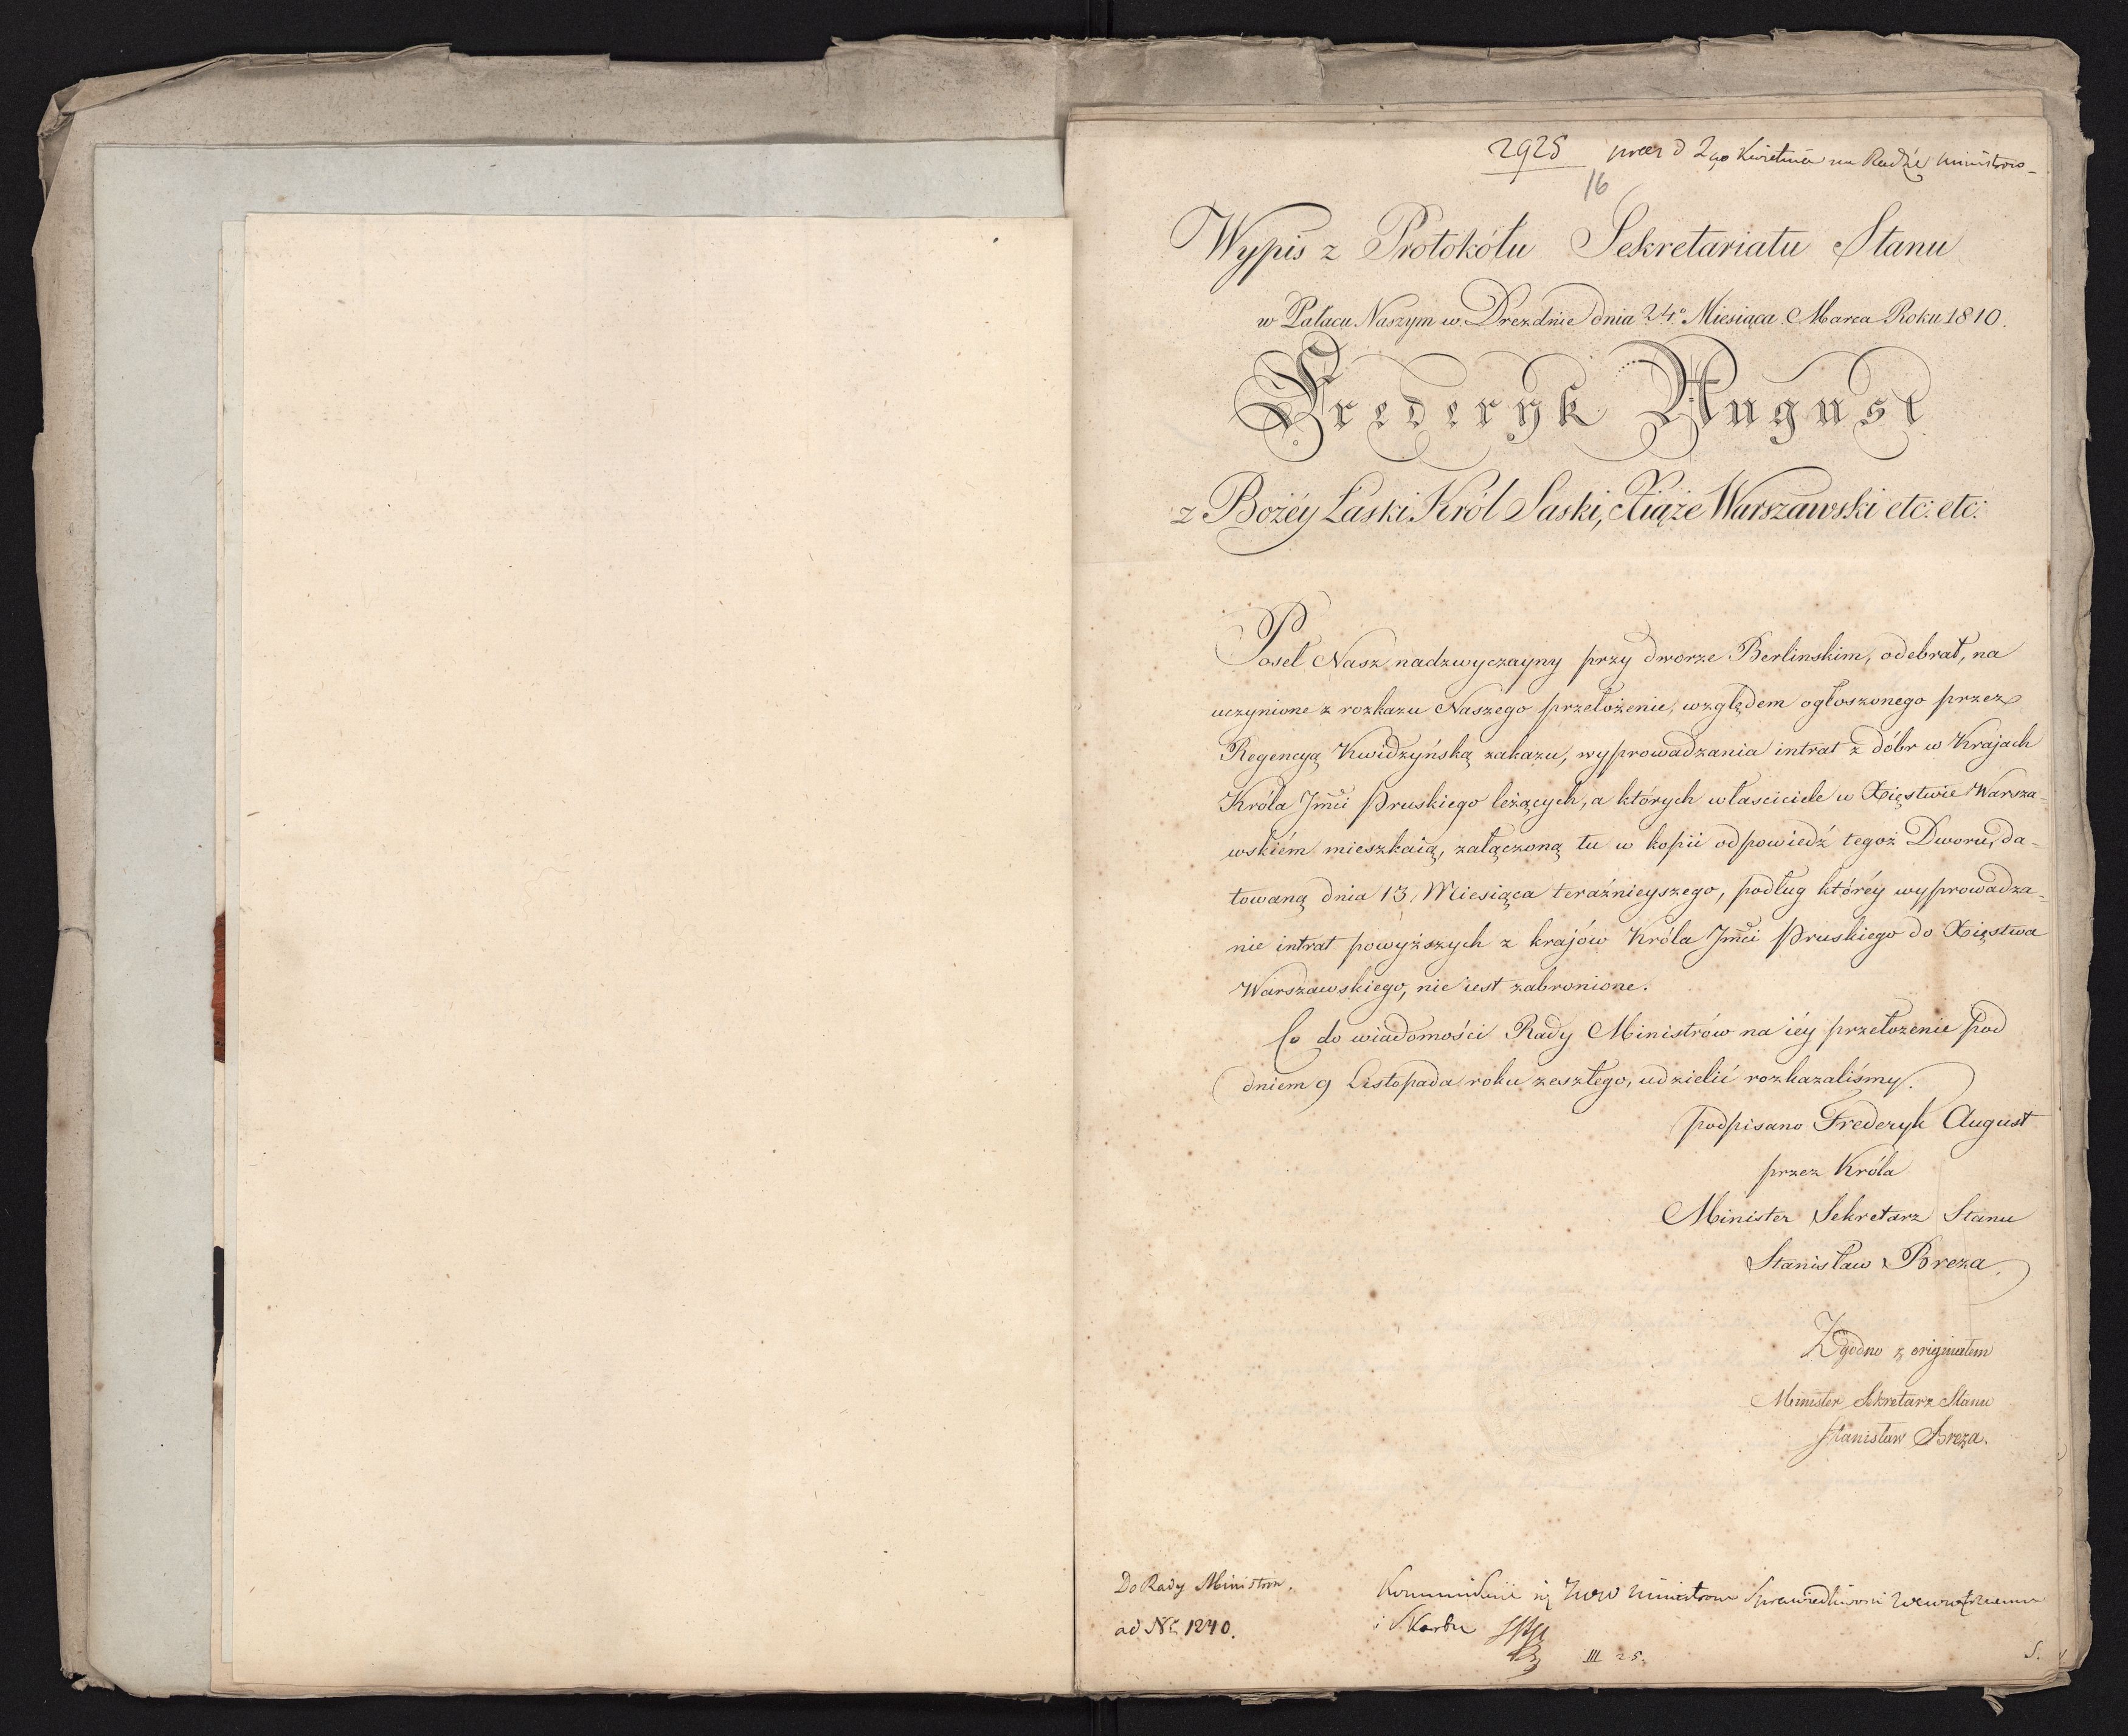 2925 d 2go Kwietnia na Radzie Ministrow
16
Wypis z Protokółu Sekretariatu Stanu
w Pałacu Naszym w Dreznie dnia 24o Miesiąca Marca Roku 1810.
Frederyk August
z Bożéy Łaski Król Saski, Xiąże Warszawski etc: etc:
Poseł Nasz nadzwyczayny przy dworze Berlinskim, odebrał, na
uczynione z rozkazu Naszego przełożenie, względem ogłoszonego przez
Regencyą Kwidzyńską zakazu, wyprowadzania intrat z dóbr w Krajach
Króla Jmći Pruskiego leżących, a których własciciele w Xięstwie Warsza=
wskiém mieszkaią, załączoną tu w kopii odpowiedź tegoż Dworu, da=
towaną dnia 13. Miesiąca teraźnieyszego, podług któréy wyprowadza=
nie intrat powyższych z krajów Króla Jmći Pruskiego do Xięstwa
Warszawskiego, nie iest zabronione.
Co do wiadomości Rady Ministrów na iéy przełożenie pod
dniem 9 Listopada roku zeszłego, udzielić rozkazaliśmy.
podpisano Frederyk August
przez Króla
Minister Sekretarz Stanu
Stanisław Breza.
Zgodno z originałem
Minister Sekretarz Stanu
Stanisław Breza.
Do Rady Ministrow.
ad No 1240.
Ministrom Sprawiedliwosci
i Skarbu
III 25.
S.